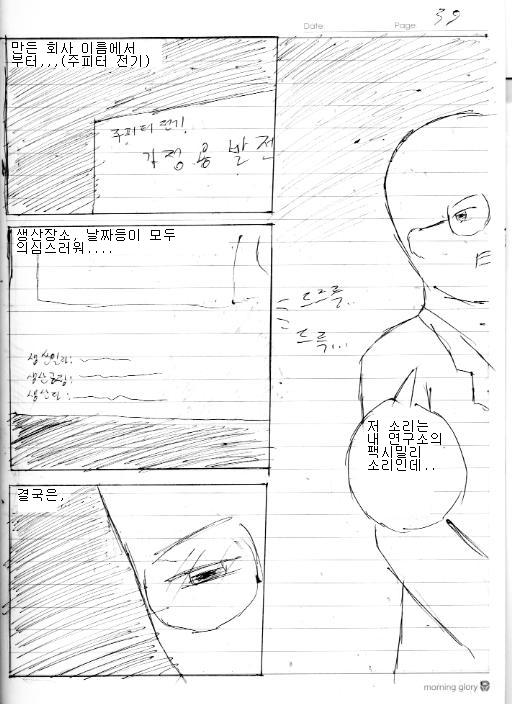 Date:
Page:
39
만든 회사 이름에서
부터,,,(주피터 전기)
주피터 전기
가정용 발전
생산장소, 날짜등이 모두
의심스러워....
생산일자:
생산공장:
생산자:
드르륵..
드륵...
저 소리는
내 연구소의
팩시밀리
소리인데..
결국은,
morning glory